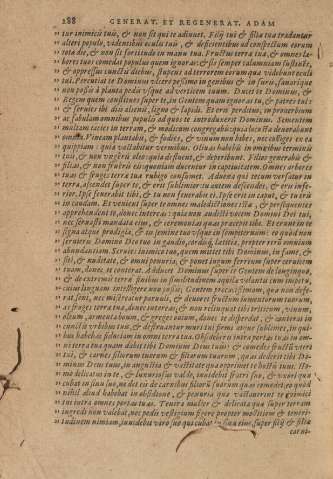 288 GENERAT. ET REGENERAT. ADAM
tur animicis tuis, & non sit qui te adiuuet. Filij tui & filiæ tuæ tradantur
alteri populo, videntibus oculis tuis, & deficientibus ad conspectum eorum
tota die, & non sit fortitudo in manu tua. Fructus terræ tuæ, & omnes la-
bores tuos comedat populus quem ignoras: & sis semper calumniam sustinēs,
& oppressus cunctis diebus, stupens ad terrorem eorum quæ videbunt oculi
tui. Percutiat te Dominus vlcere pessimo in genibus & in suris, sanarique
non possis à planta pedis vsque ad verticem tuum. Ducet te Dominus, &
Regem quem constitues super te, in Gentem quam ignoras tu, & patres tui:
& seruies ibi diis alienis, ligno & lapidi. Et eris perditus, in prouerbium
ac fabulam omnibus populis ad quos te introduxerit Dominus. Sementem
multam iacies in terram, & modicum congregabis: quia locustæ deuorabunt
omnia. Vineam plantabis, & fodies, & vinum non bibes, nec colliges ex ea
quippiam: quia vastabitur vermibus. Oliuas habebis in omnibus terminis
tuis, & non vngeris oleo: quia defluent, & deperibunt. Filios generabis &
filias, & non frueris eis: quoniam ducentur in captiuitatem. Omnes arbores
tuas & fruges terræ tuæ rubigo consumet. Aduena qui tecum versatur in
terra, ascendet super te, & erit sublimior: tu autem descendes, & eris infe-
rior. Ipse fœnerabit tibi, & tu non fœnerabis ei. Ipse erit in caput, & tu eris
in caudam. Et venient super te omnes maledictiones istæ, & persequentes
apprehendent te, donec intereas: quia non audisti vocem Domini Dei tui,
nec seruasti mandata eius, & cerimonias quas præcepit tibi. Et erunt in te
signa atque prodigia, & in semine tuo vsque in sempiternum: eo quòd non
seruieris Domino Deo tuo in gaudio, cordisq. lætitia, propter rerū omnium
abundantiam. Seruies inimico tuo, quem mittet tibi Dominus, in fame, &
siti, & nuditate, & omni penuria, & ponet iugum ferreum super ceruicem
tuam, donec te conterat. Adducet Dominus super te Gentem de longinquo,
& de extremis terræ finibus in similitudinem aquilæ volantis cum impetu,
cuius linguam intelligere non possis; Gentem procacissimam, quæ non defe-
rat seni, nec misereatur paruuli, & deuoret fructum iumentorum tuorum,
ac fruges terræ tuæ, donec intereas; & non relinquat tibi triticum, vinum,
oleum, armenta boum, & greges ouium, donec te disperdat, & conterat in
cunctis vrbibus tuis, & destruantur muri tui firmi atque sublimes, in qui-
bus habebas fiduciam in omni terra tua. Obsideberis intra portas tuas in om-
ni terra tua quam dabit tibi Dominus Deus tuus: & comedes fructū vteri
tui, & carnes filiorum tuorum & filiarum tuarum, quas dederit tibi Do-
minus Deus tuus, in angustia & vastitate qua opprimet te hostis tuus. Ho-
mo delicatus in te, & luxuriosus valde, inuidebit fratri suo, & vxori quæ
cubat in sinu suo, ne det eis de carnibus filiorū suorum quas comedet: eo quòd
nihil aliud habebat in obsidione, & penuria qua vastauerint te inimici
tui intra omnes portas tuas. Tenera mulier & delicata quæ super terram
ingredi non valebat, nec pedis vestigium figere propter mollitiem & teneri-
tudinem nimiam, inuidebit viro suo qui cubat in sinu eius, super filij & filiæ
carni-